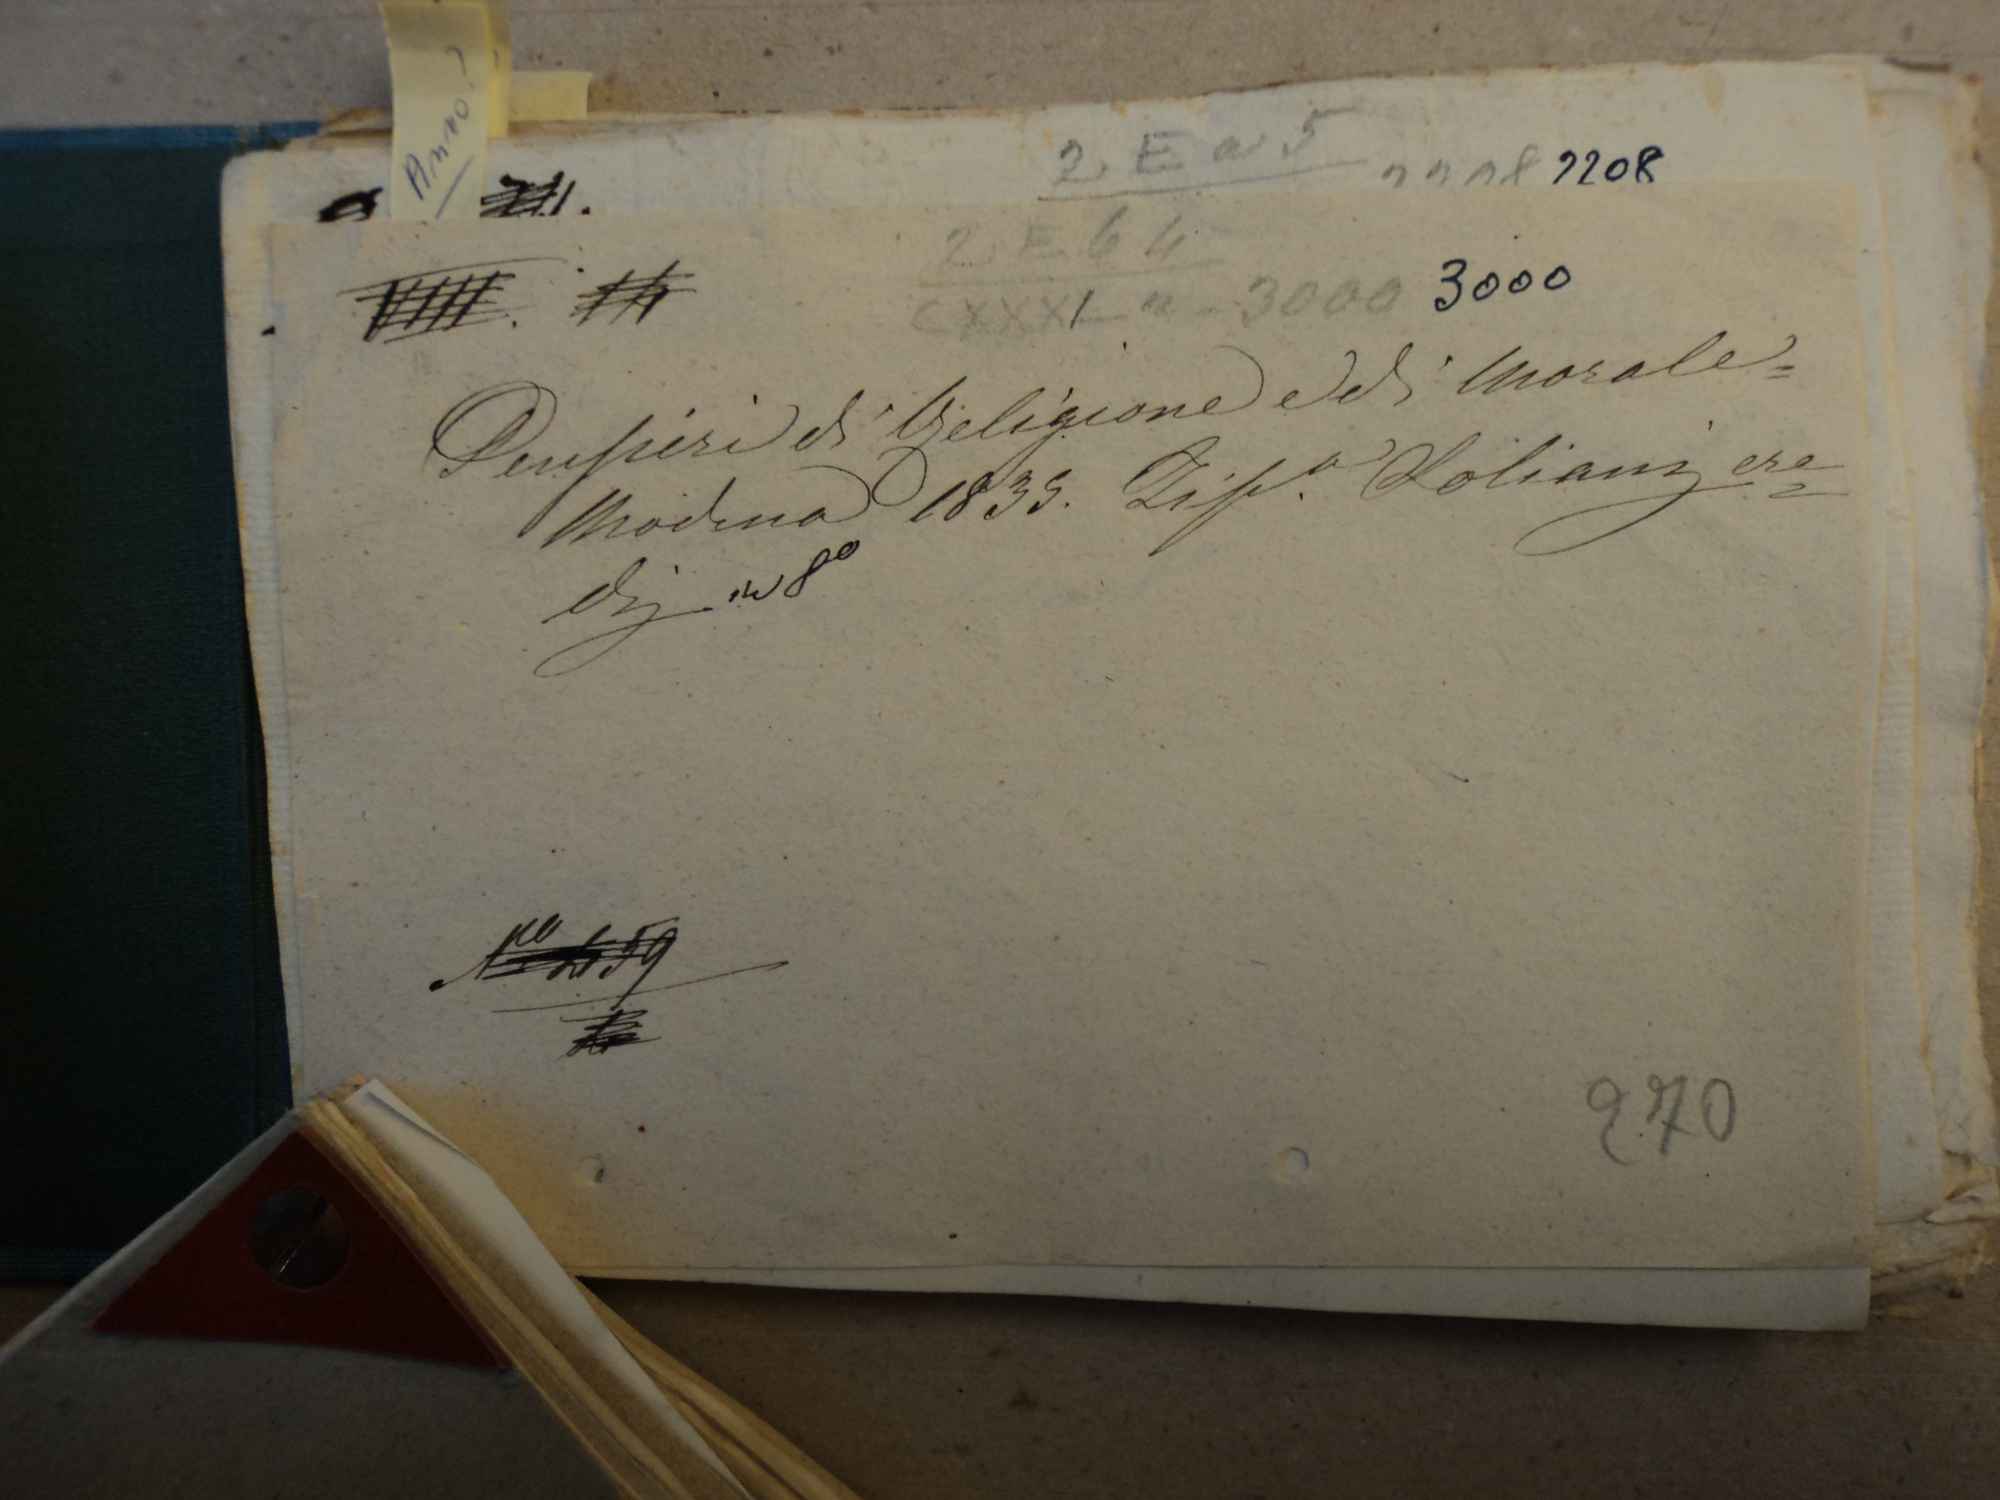 Anno?
2 E a 5
2208 2208
2 E 6 4
CXXXI n - 3000 3000
Pensieri di Religione e di Morale=
Modena 1833. Tip.a Soliani ere=
di in 8o
No 59
270